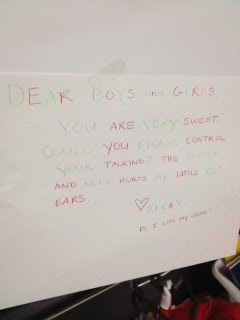 DEAR BOYS and GIRLS,
YOU ARE VERY SWEET.
COULD YOU PLEASE CONTROL
YOUR TALKING? THE TALKING
AND NOISE HURTS MY LITTLE ELF
EARS.
♡ KIRBY
PS I LOVE MY NAME!